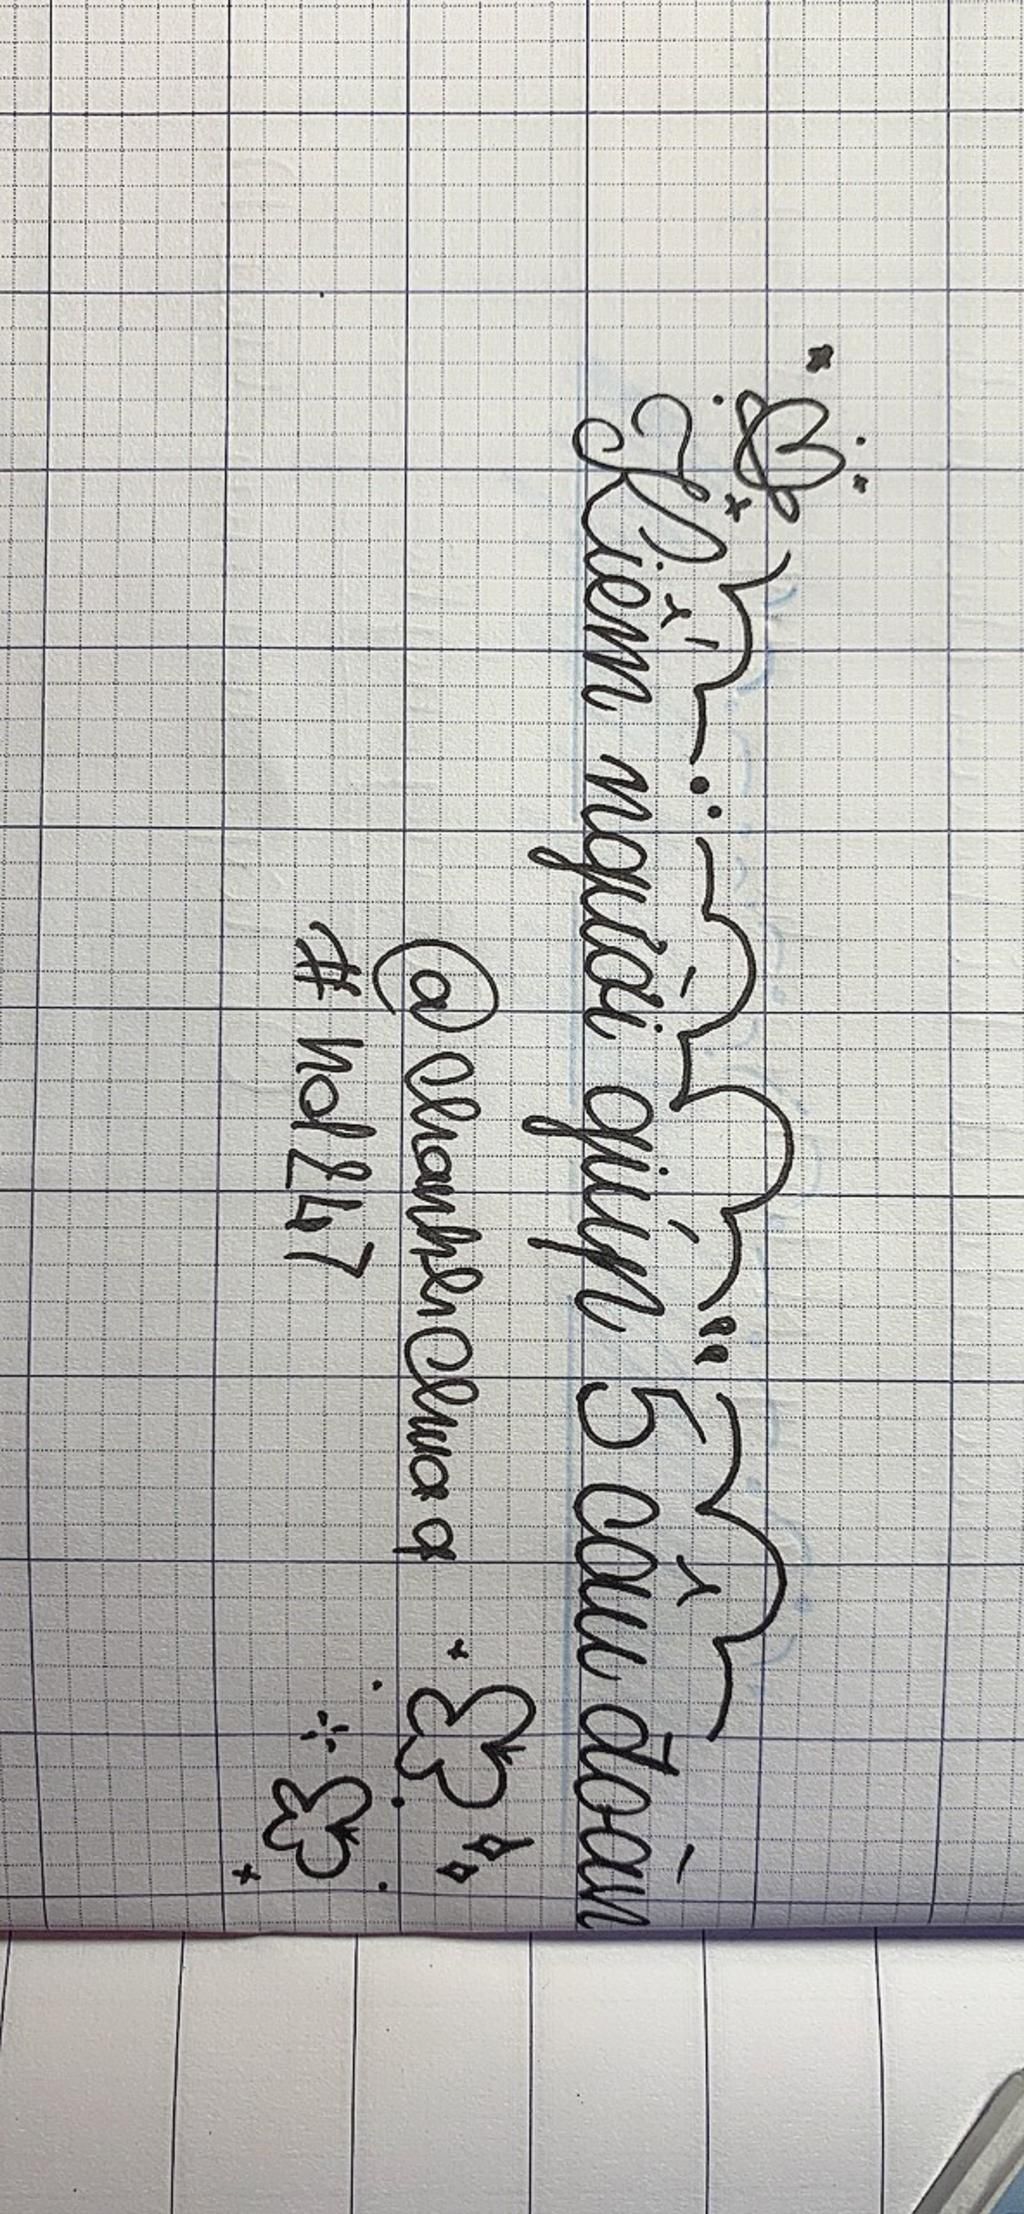 Kiếm người giúp 5 câu đoàn
@chanhchichuaa
#hd247